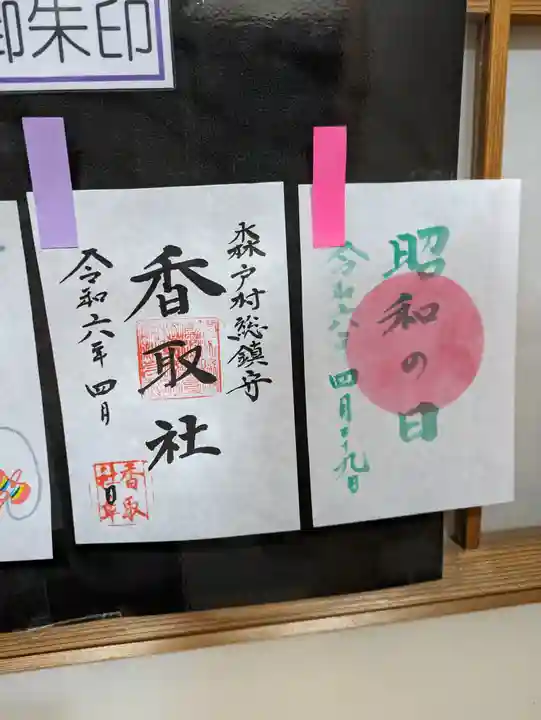 御朱印
淼戸村総鎮守
香取社
令和六年 四月
香取
日
昭和の日
令和六年 四月二十九日